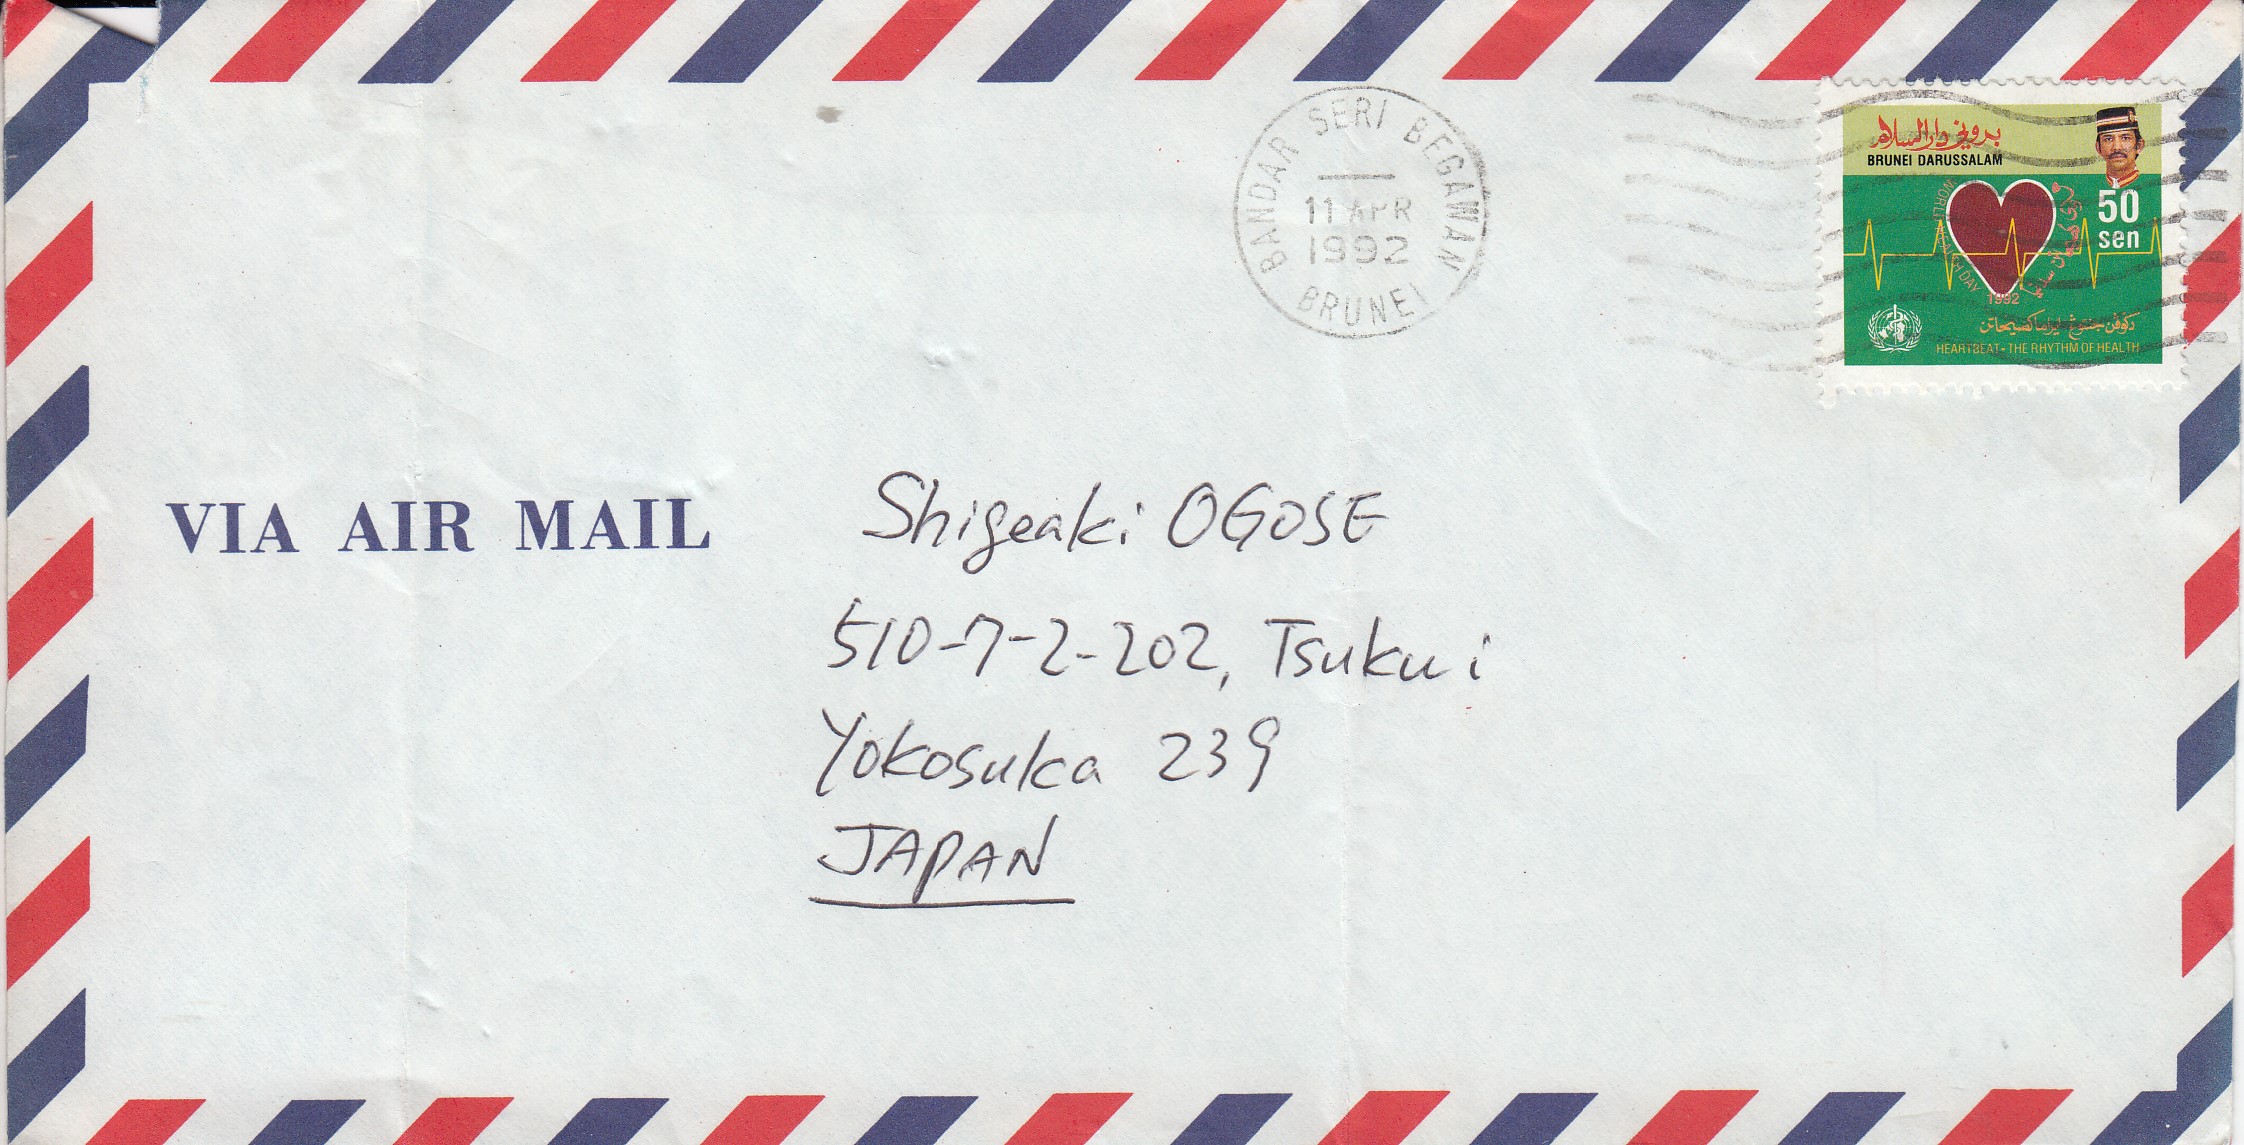 BANDAR SERI BEGAWAN
11 APR
1992
BRUNEI
بروني دارالسلام
BRUNEI DARUSSALAM
50
sen
WORLD HEALTH DAY
1992
HEARTBEAT - THE RHYTHM OF HEALTH
VIA AIR MAIL
Shigeaki OGOSE
510-7-2-202, Tsukui
Yokosuka 239
JAPAN